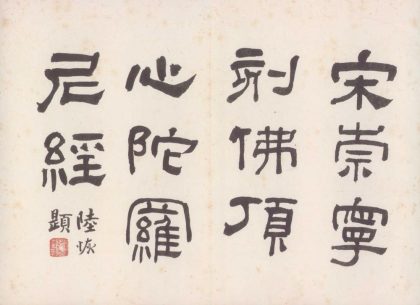 宋崇寧
刻佛頂
心陀羅
尼經
陸恢
題